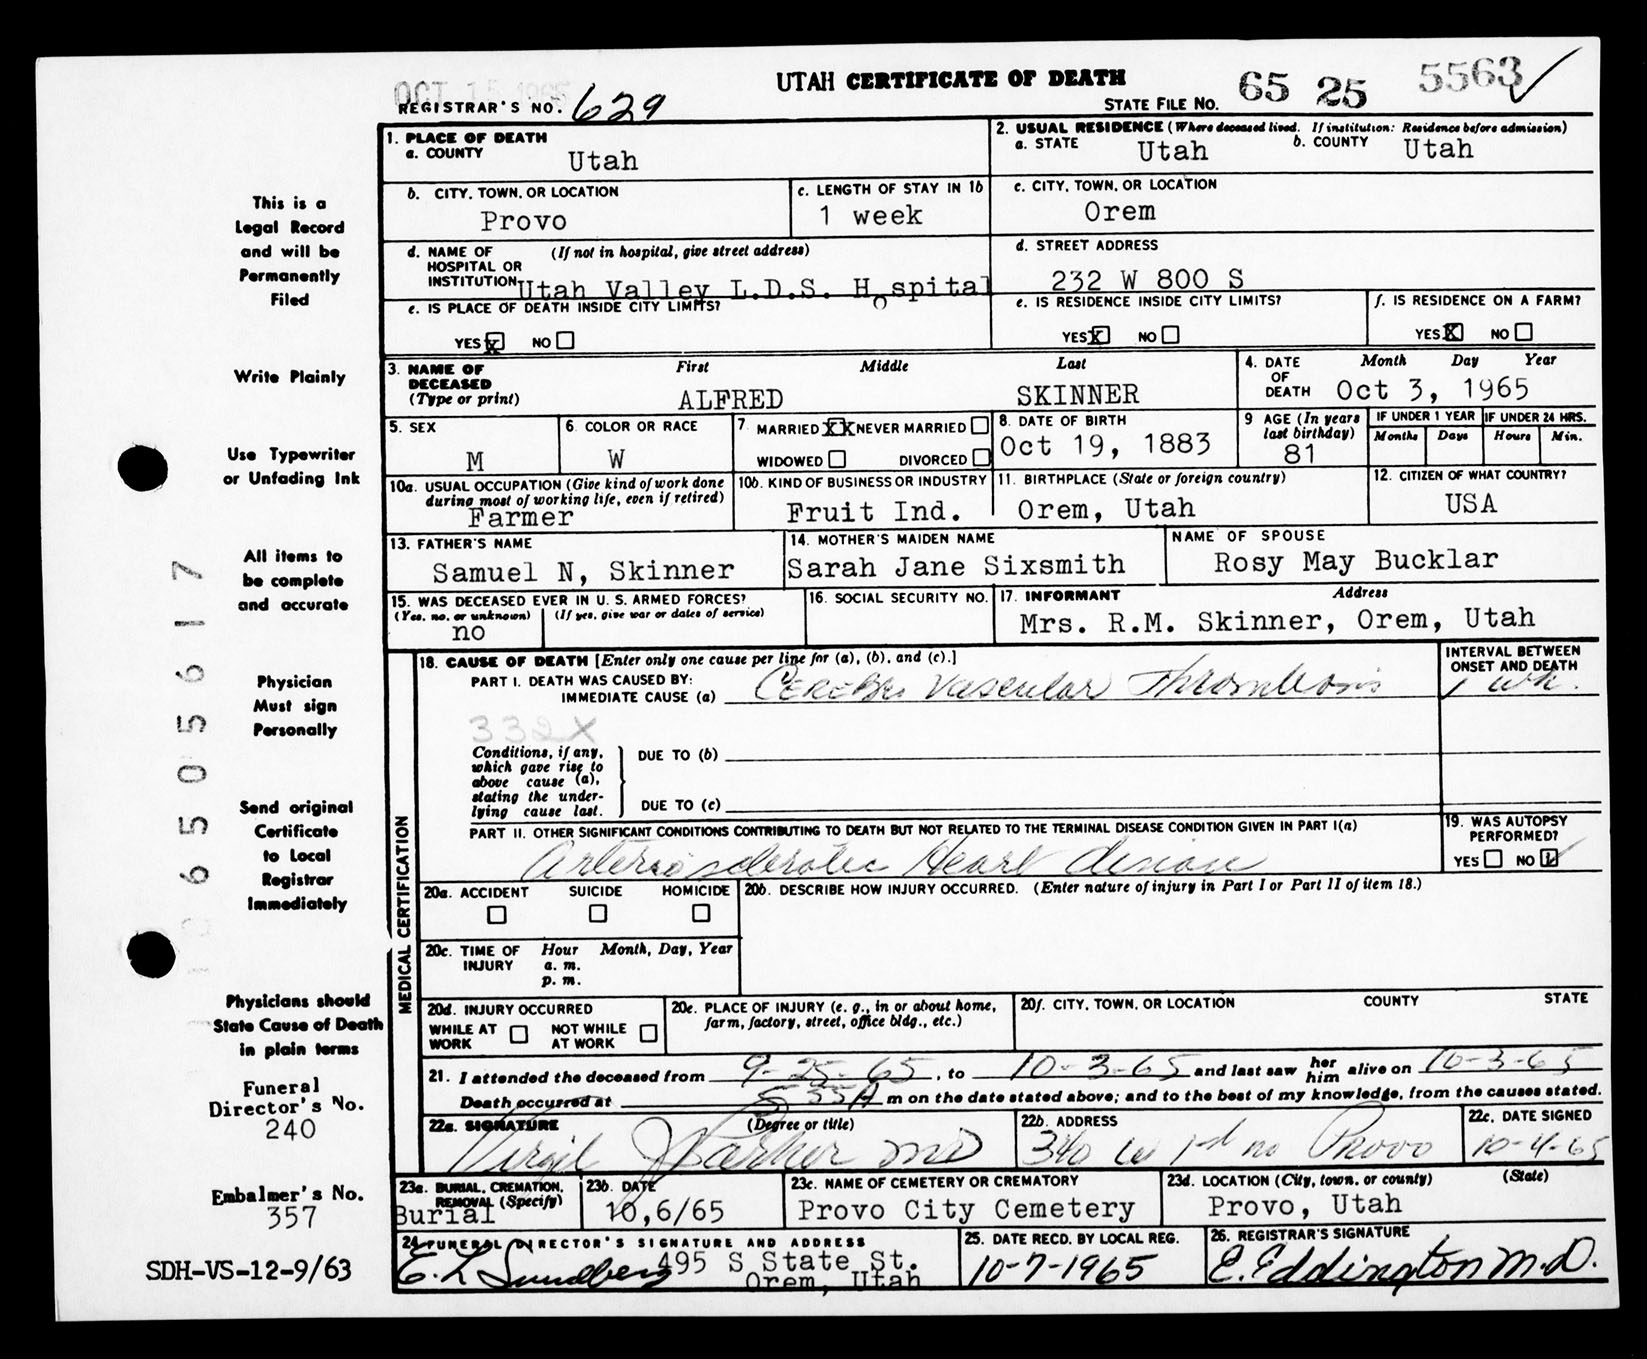 OCT 15 1965
UTAH CERTIFICATE OF DEATH
REGISTRAR'S NO. 629
STATE FILE NO. 65 25 5563 ✓
1. PLACE OF DEATH
a. COUNTY
Utah
2. USUAL RESIDENCE (Where deceased lived. If institution: Residence before admission)
a. STATE Utah b. COUNTY Utah
b. CITY, TOWN, OR LOCATION
Provo
c. LENGTH OF STAY IN 1b
1 week
c. CITY, TOWN, OR LOCATION
Orem
d. NAME OF HOSPITAL OR INSTITUTION (If not in hospital, give street address)
Utah Valley L.D.S. Hospital
d. STREET ADDRESS
232 W 800 S
e. IS PLACE OF DEATH INSIDE CITY LIMITS?
YES X NO
e. IS RESIDENCE INSIDE CITY LIMITS?
YES X NO
f. IS RESIDENCE ON A FARM?
YES X NO
3. NAME OF DECEASED (Type or print)
First Middle Last
ALFRED SKINNER
4. DATE OF DEATH Month Day Year
Oct 3, 1965
5. SEX
M
6. COLOR OR RACE
W
7. MARRIED XX NEVER MARRIED
WIDOWED DIVORCED
8. DATE OF BIRTH
Oct 19, 1883
9 AGE (In years last birthday)
81
IF UNDER 1 YEAR IF UNDER 24 HRS.
Months Days Hours Min.
10a. USUAL OCCUPATION (Give kind of work done during most of working life, even if retired)
Farmer
10b. KIND OF BUSINESS OR INDUSTRY
Fruit Ind.
11. BIRTHPLACE (State or foreign country)
Orem, Utah
12. CITIZEN OF WHAT COUNTRY?
USA
13. FATHER'S NAME
Samuel N, Skinner
14. MOTHER'S MAIDEN NAME
Sarah Jane Sixsmith
NAME OF SPOUSE
Rosy May Bucklar
15. WAS DECEASED EVER IN U. S. ARMED FORCES?
(Yes, no, or unknown) (If yes, give war or dates of service)
no
16. SOCIAL SECURITY NO.
17. INFORMANT Address
Mrs. R.M. Skinner, Orem, Utah
MEDICAL CERTIFICATION
18. CAUSE OF DEATH [Enter only one cause per line for (a), (b), and (c).]
INTERVAL BETWEEN ONSET AND DEATH
PART I. DEATH WAS CAUSED BY:
IMMEDIATE CAUSE (a) Cerebro Vascular Thrombosis 1 wk.
332X
Conditions, if any, which gave rise to above cause (a), stating the under-lying cause last.
DUE TO (b)
DUE TO (c)
PART II. OTHER SIGNIFICANT CONDITIONS CONTRIBUTING TO DEATH BUT NOT RELATED TO THE TERMINAL DISEASE CONDITION GIVEN IN PART I(a)
Arteriosclerotic Heart disease
19. WAS AUTOPSY PERFORMED?
YES NO ✓
20a. ACCIDENT SUICIDE HOMICIDE
20b. DESCRIBE HOW INJURY OCCURRED. (Enter nature of injury in Part I or Part II of item 18.)
20c. TIME OF INJURY Hour Month, Day, Year
a. m.
p. m.
20d. INJURY OCCURRED
WHILE AT WORK NOT WHILE AT WORK
20e. PLACE OF INJURY (e. g., in or about home, farm, factory, street, office bldg., etc.)
20f. CITY, TOWN, OR LOCATION COUNTY STATE
21. I attended the deceased from 9-25-65, to 10-3-65 and last saw her him alive on 10-3-65
Death occurred at 5 55A m on the date stated above; and to the best of my knowledge, from the causes stated.
22a. SIGNATURE (Degree or title)
Virgil J Parker MD
22b. ADDRESS
340 W 1st no Provo
22c. DATE SIGNED
10-4-65
23a. BURIAL, CREMATION, REMOVAL (Specify)
Burial
23b. DATE
10,6/65
23c. NAME OF CEMETERY OR CREMATORY
Provo City Cemetery
23d. LOCATION (City, town, or county) (State)
Provo, Utah
24 FUNERAL DIRECTOR'S SIGNATURE AND ADDRESS
E. L Sundberg 495 S State St.
Orem, Utah
25. DATE RECD. BY LOCAL REG.
10-7-1965
26. REGISTRAR'S SIGNATURE
E. Eddington M.D.
This is a
Legal Record
and will be
Permanently
Filed
Write Plainly
Use Typewriter
or Unfading Ink
All items to
be complete
and accurate
Physician
Must sign
Personally
Send original
Certificate
to Local
Registrar
Immediately
Physicians should
State Cause of Death
in plain terms
Funeral
Director's No.
240
Embalmer's No.
357
SDH-VS-12-9/63
65055617